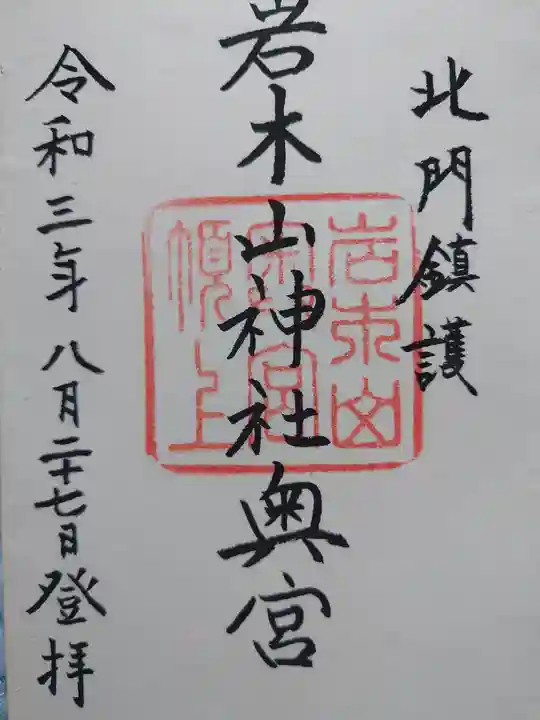 北門鎮護
岩木山神社奥宮
岩木山
頂上
令和三年八月二十七日登拝